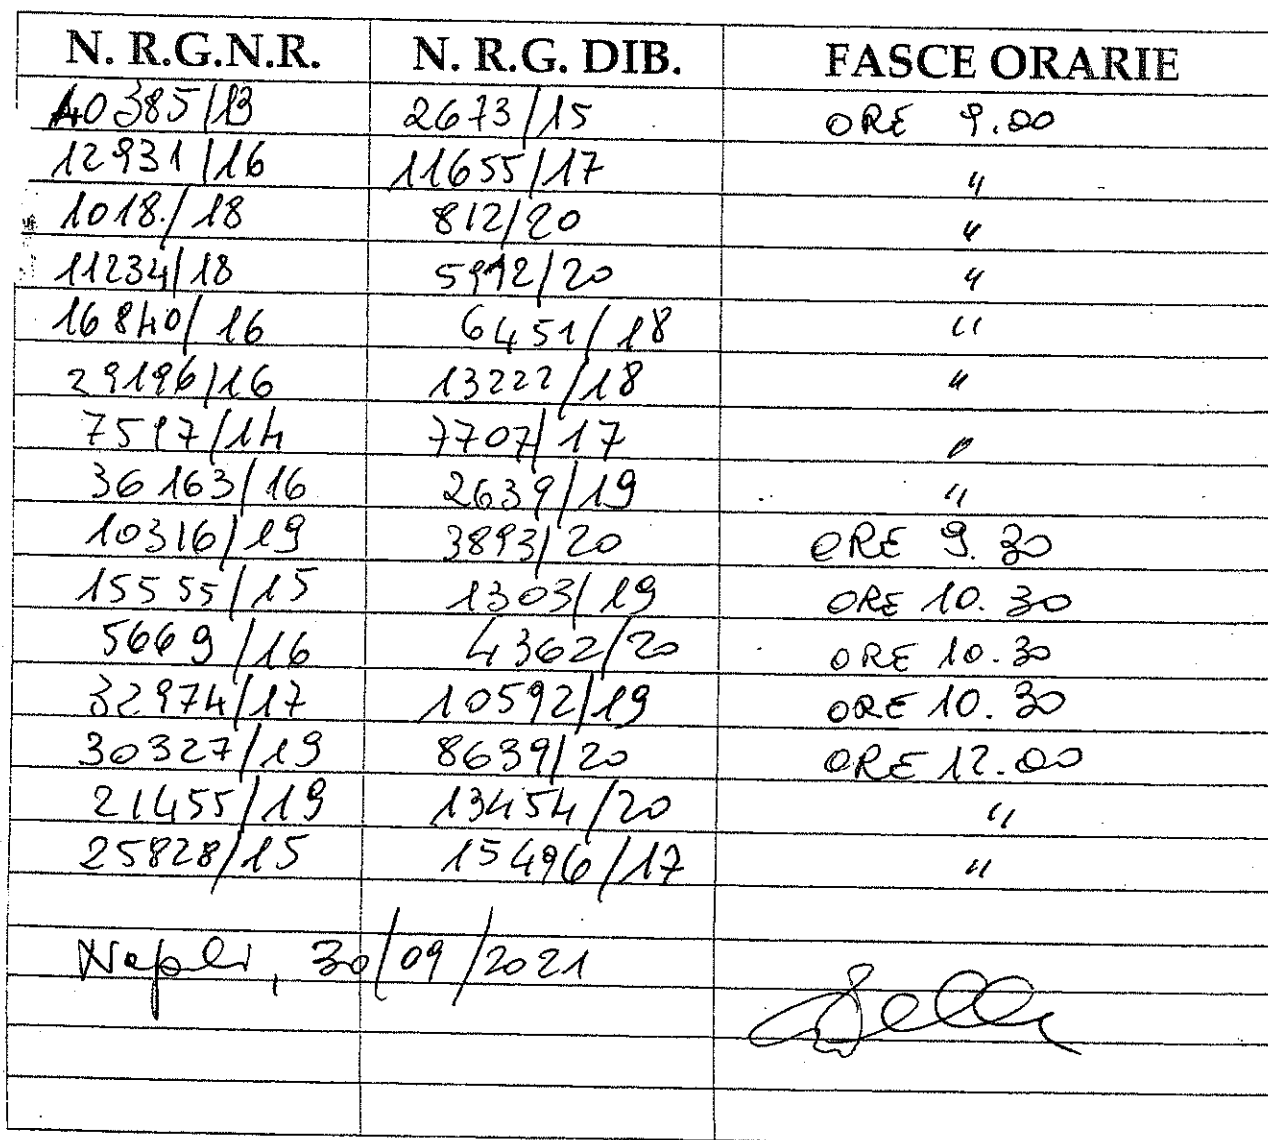 N. R.G.N.R. N. R.G. DIB. FASCE ORARIE
40385/13 2673/15 ORE 9.00
12931/16 11655/17 "
1018/18 812/20 "
11234/18 5992/20 "
16840/16 6451/18 "
29196/16 13222/18 "
7597/14 7707/17 "
36163/16 2639/19 "
10316/19 3893/20 ORE 9.30
15555/15 1303/19 ORE 10.30
5669/16 4362/20 ORE 10.30
32974/17 10592/19 ORE 10.30
30327/19 8639/20 ORE 12.00
21455/19 13454/20 "
25828/15 15496/17 "
Napoli, 30/09/2021